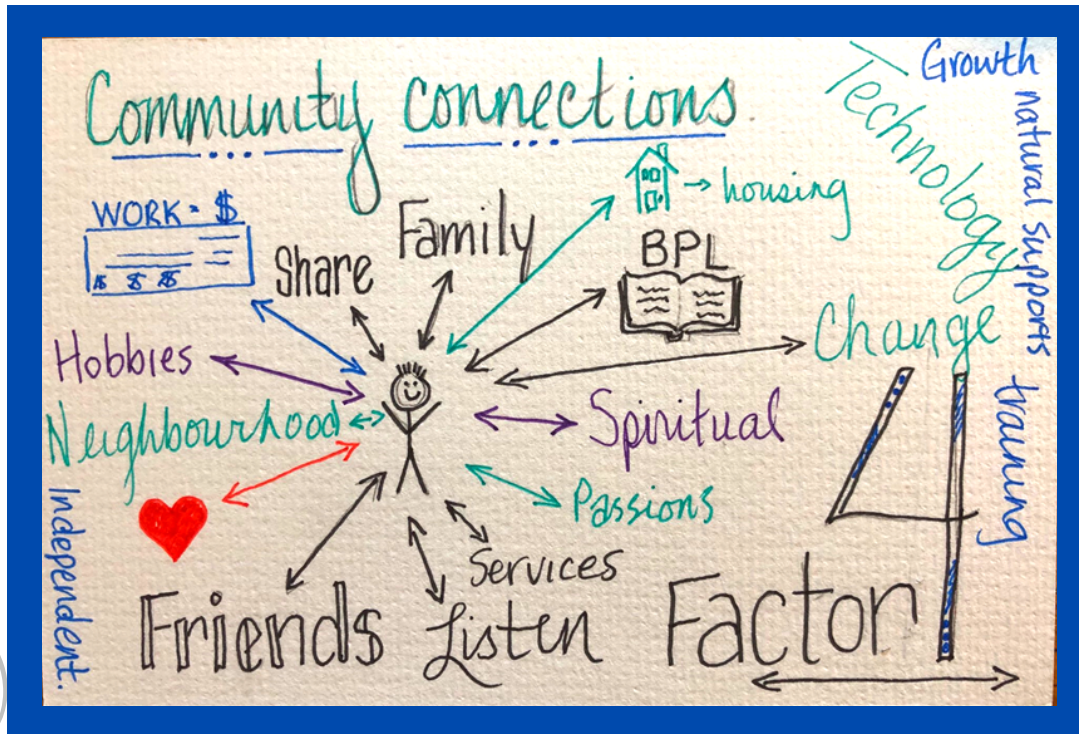 Community connections.
Growth
Technology
natural supports
training
WORK = $
Share
Family
→ housing
BPL
$ $ $$
Hobbies
Change
Neighbourhood
Spiritual
4
Passions
Independent.
Services
Friends
Listen
Factor